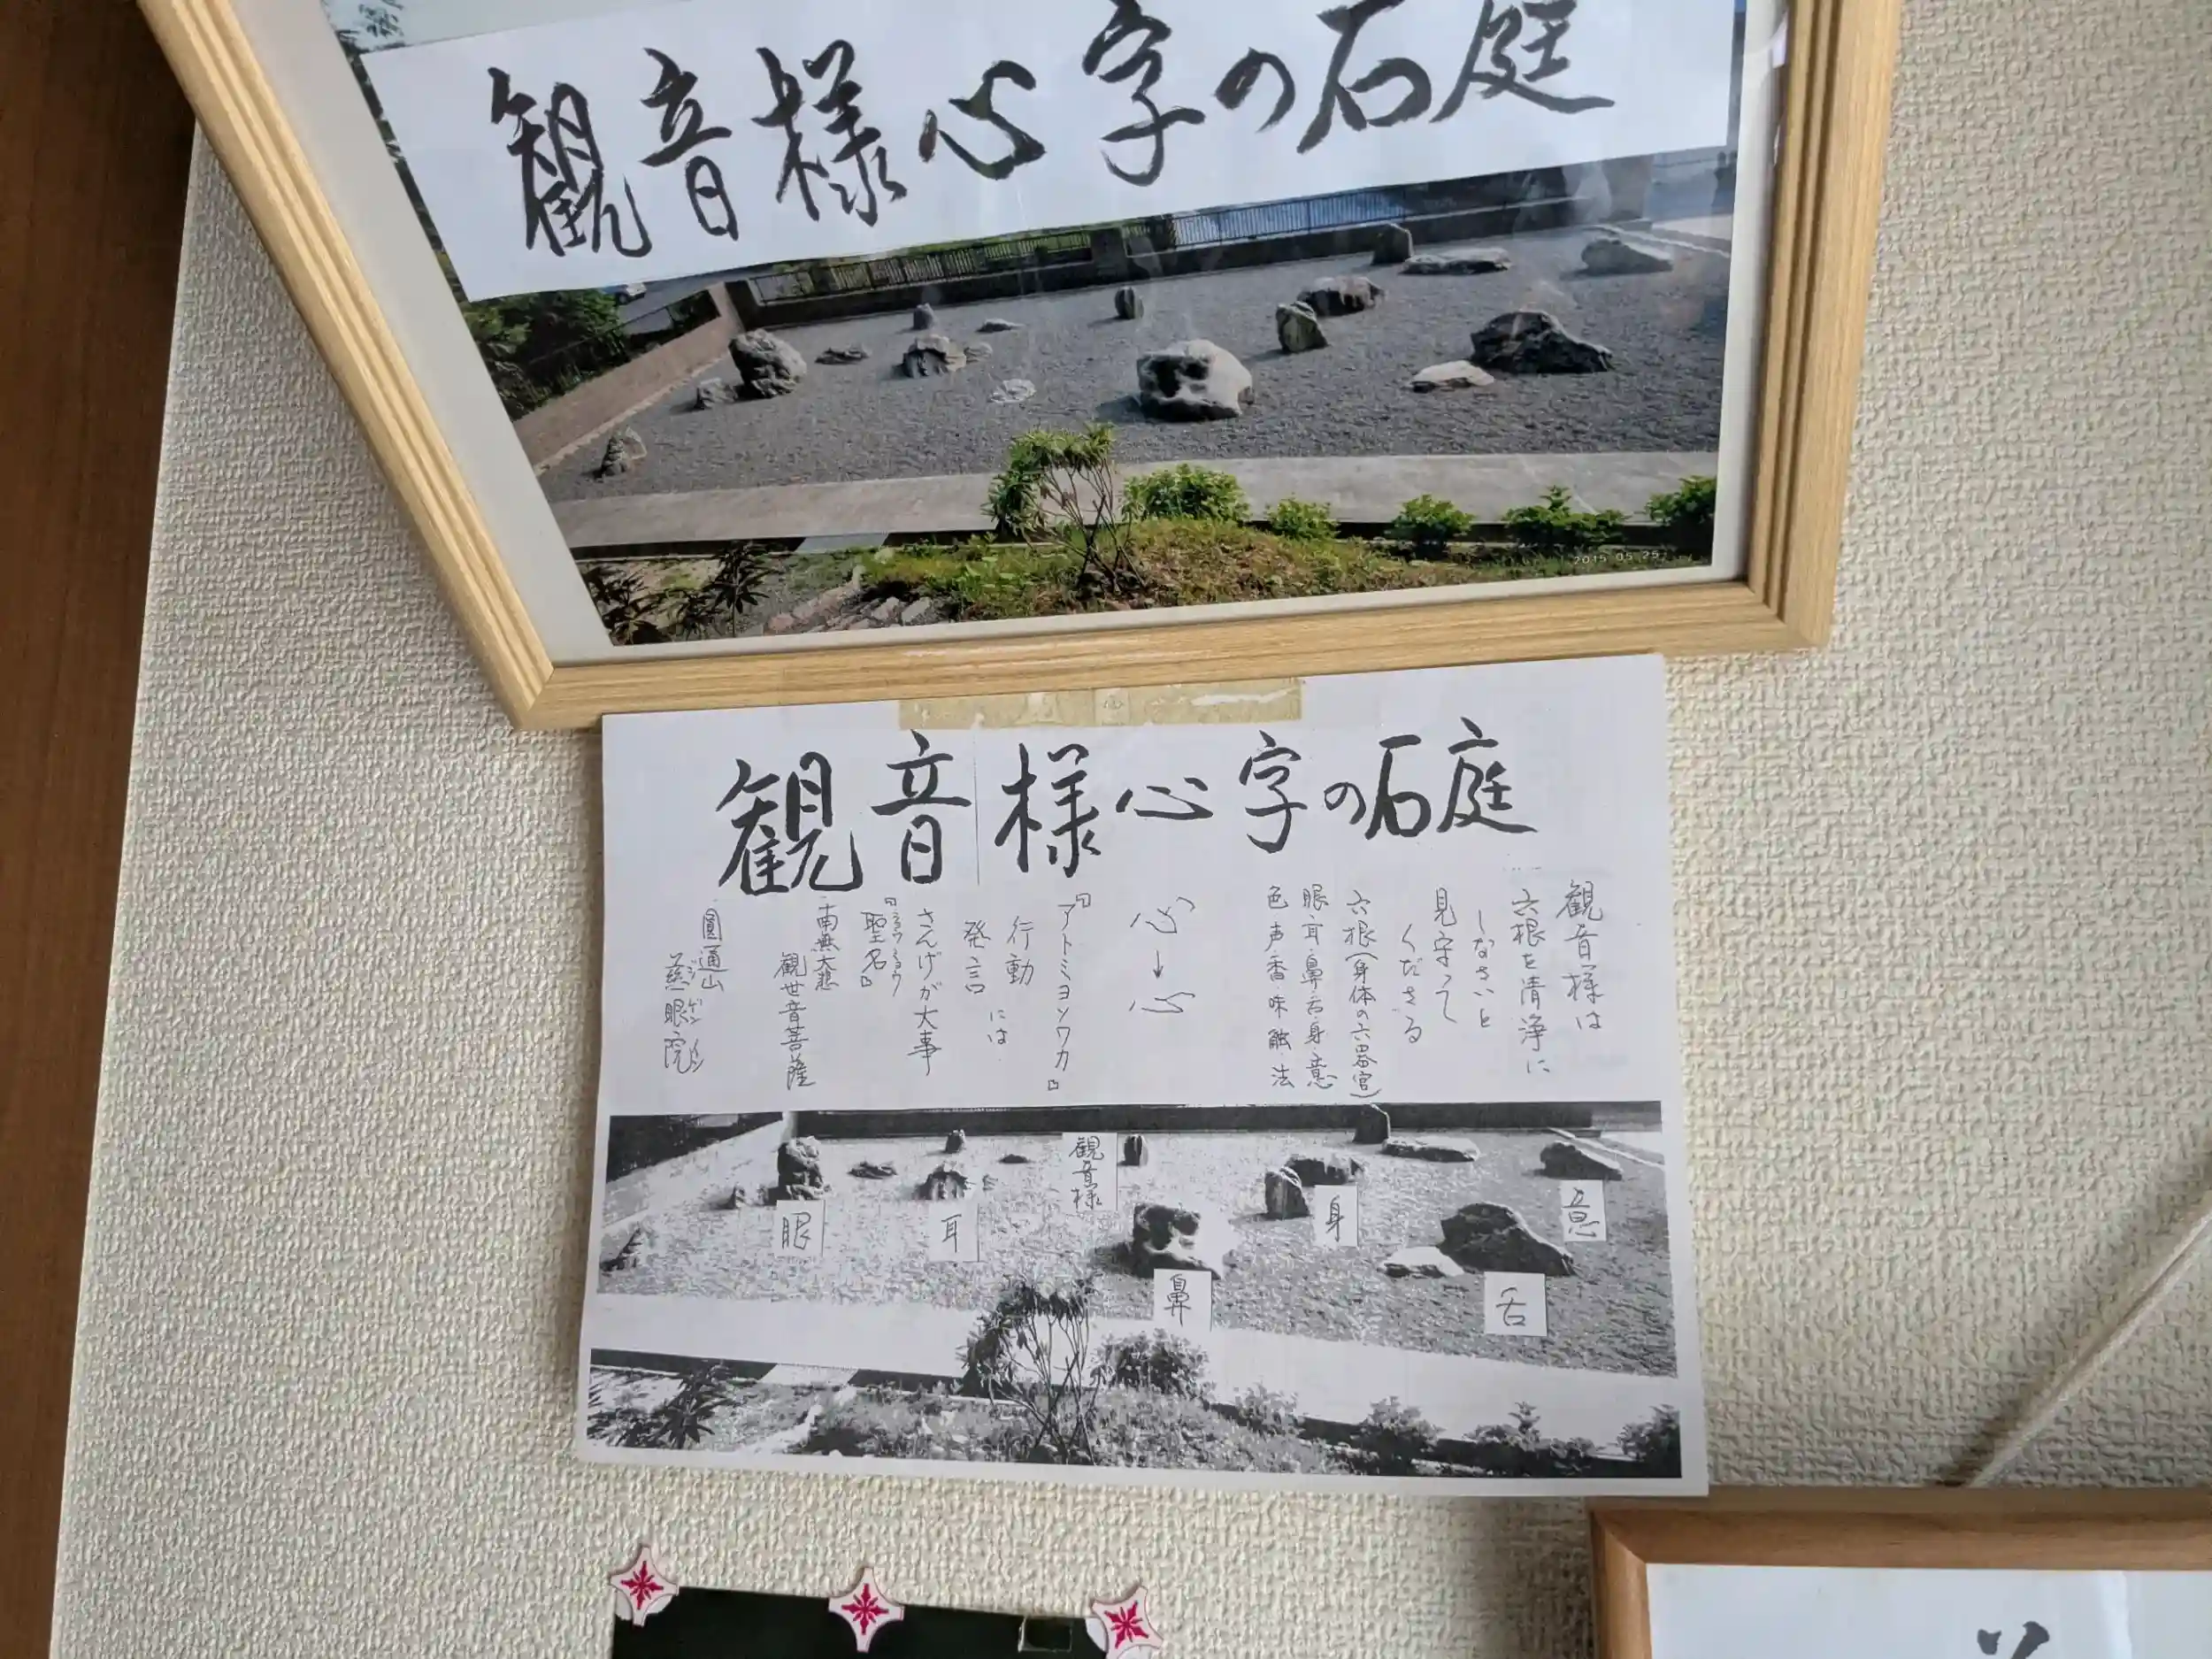 観音様心字の石庭
2015 05 25
観音様心字の石庭
観音様は
六根を清浄に
しなさいと
見守って
くださる
六根(身体の六器官)
眼耳鼻舌身意
色声香味触法
心→心
『アトミヨソワカ』
行動
発言には
さんげが大事
『聖名』
南無大悲
観世音菩薩
圓通山
慈眼院
ジゲンイン
観音様
眼
耳
鼻
身
舌
意